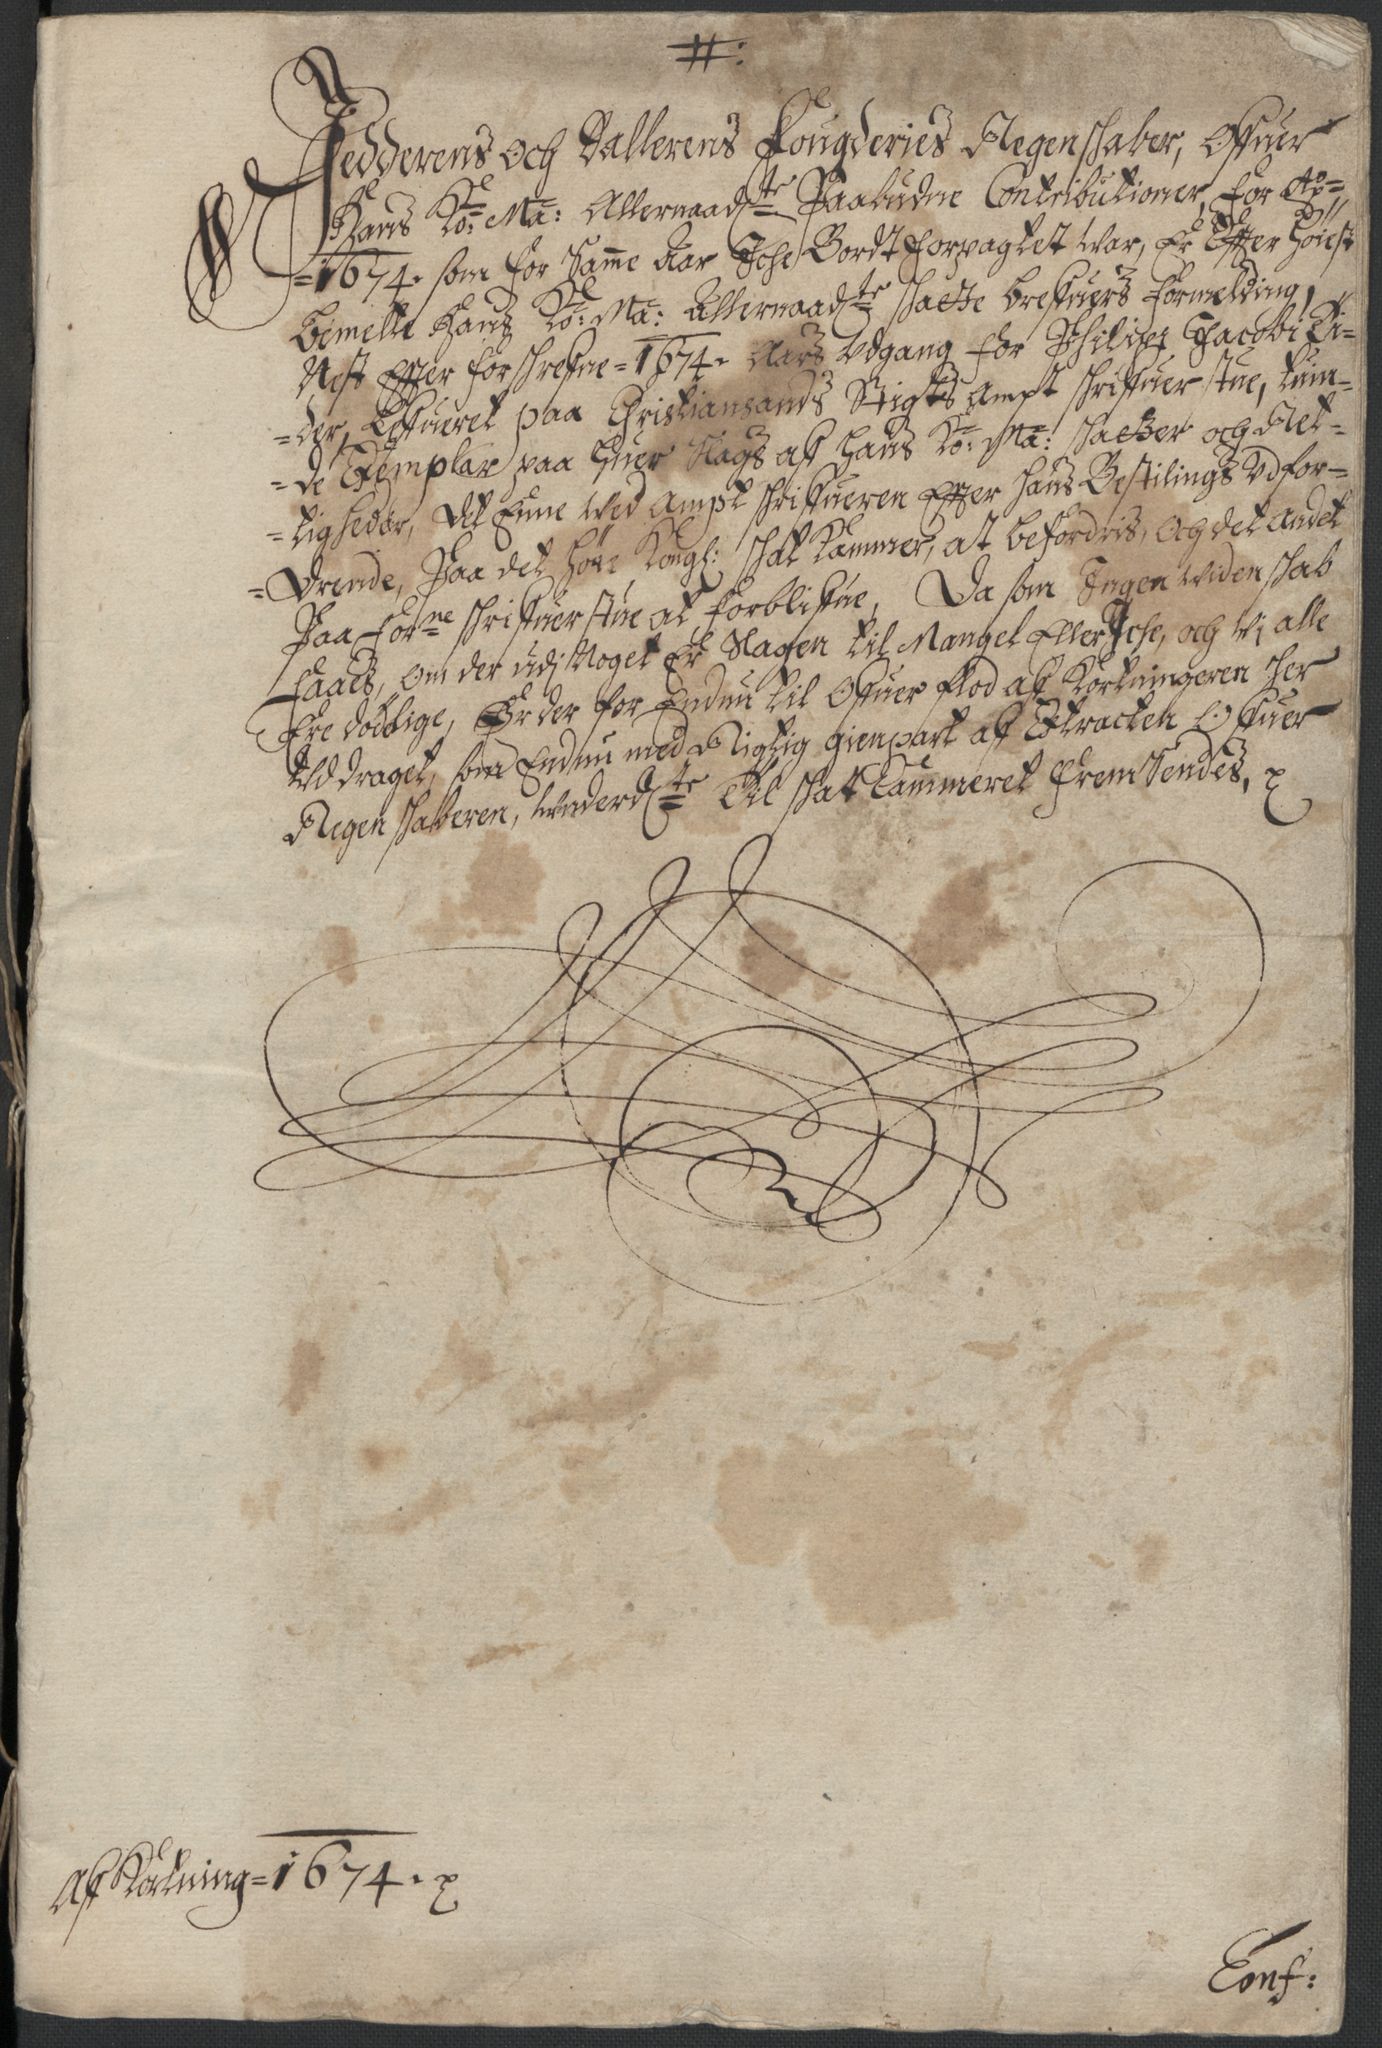 #:
Jedderens och Dallerens Fougderies Regenskaber, Offuer
Hans Kô: Ma: Allernaadste Paabudne Contributioner, for Ao=
=1674. som for Samme Aar Iche Bordt forpagtet war, Er Effter Høiest
bemelte Hans Kô: Ma: Allernaadste skatte breffuers formelding,
Nest Effter forschrefne =1674. Aars Udgang for Philipi Jacobi Ti=
=der, Lefueret paa Christiansands Stigts Ampt schriffuer stue, tuin=
=de Exemplar paa huer Slags aff hans Kô: Ma: skatter och Ret=
=tigheder, det Eine wed Ampt schriffueren Effter hans Bestilings Udfor=
=drende, Paa det høie Kongl: skat Kammer, at befordris, och det andet
Paa forne schriffuer stue at forbliffue, Da som Ingen widenskab
haads, om der udj Noget Er Slagen til Mangel Eller Iche, och wj alle
Ere dødelige, Er der for Endnu til Offuer flod aff Kortningeren her
Uddraget, som Endnu med Rigtig gienpart aff Extracten Offuer
Regenskaberen, underdste til skatkammeret frem Sendes,
Aff Kortning =1674.
Conf: